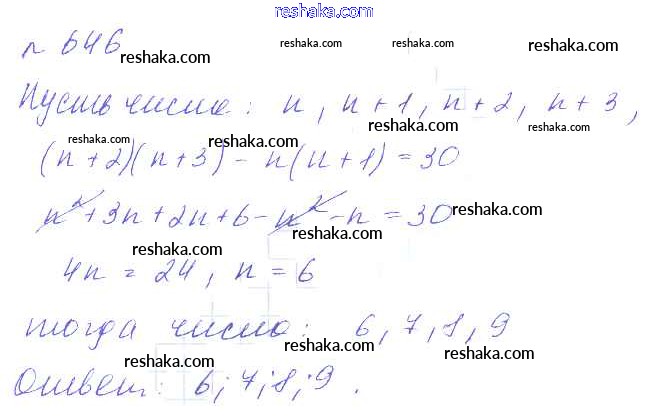 reshaka.com
№ 646
reshaka.com reshaka.com reshaka.com reshaka.com
Пусть числа: n, n+1, n+2, n+3,
reshaka.com reshaka.com reshaka.com reshaka.com
(n+2)(n+3) - n(n+1) = 30
n² + 3n + 2n + 6 - n² - n = 30
reshaka.com reshaka.com
4n = 24, n = 6
reshaka.com reshaka.com
тогда числа: 6, 7, 8, 9
reshaka.com reshaka.com reshaka.com
Ответ: 6; 7; 8; 9.